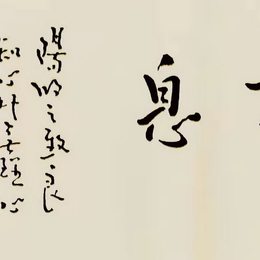 息
陽明之致良
知心外無理心